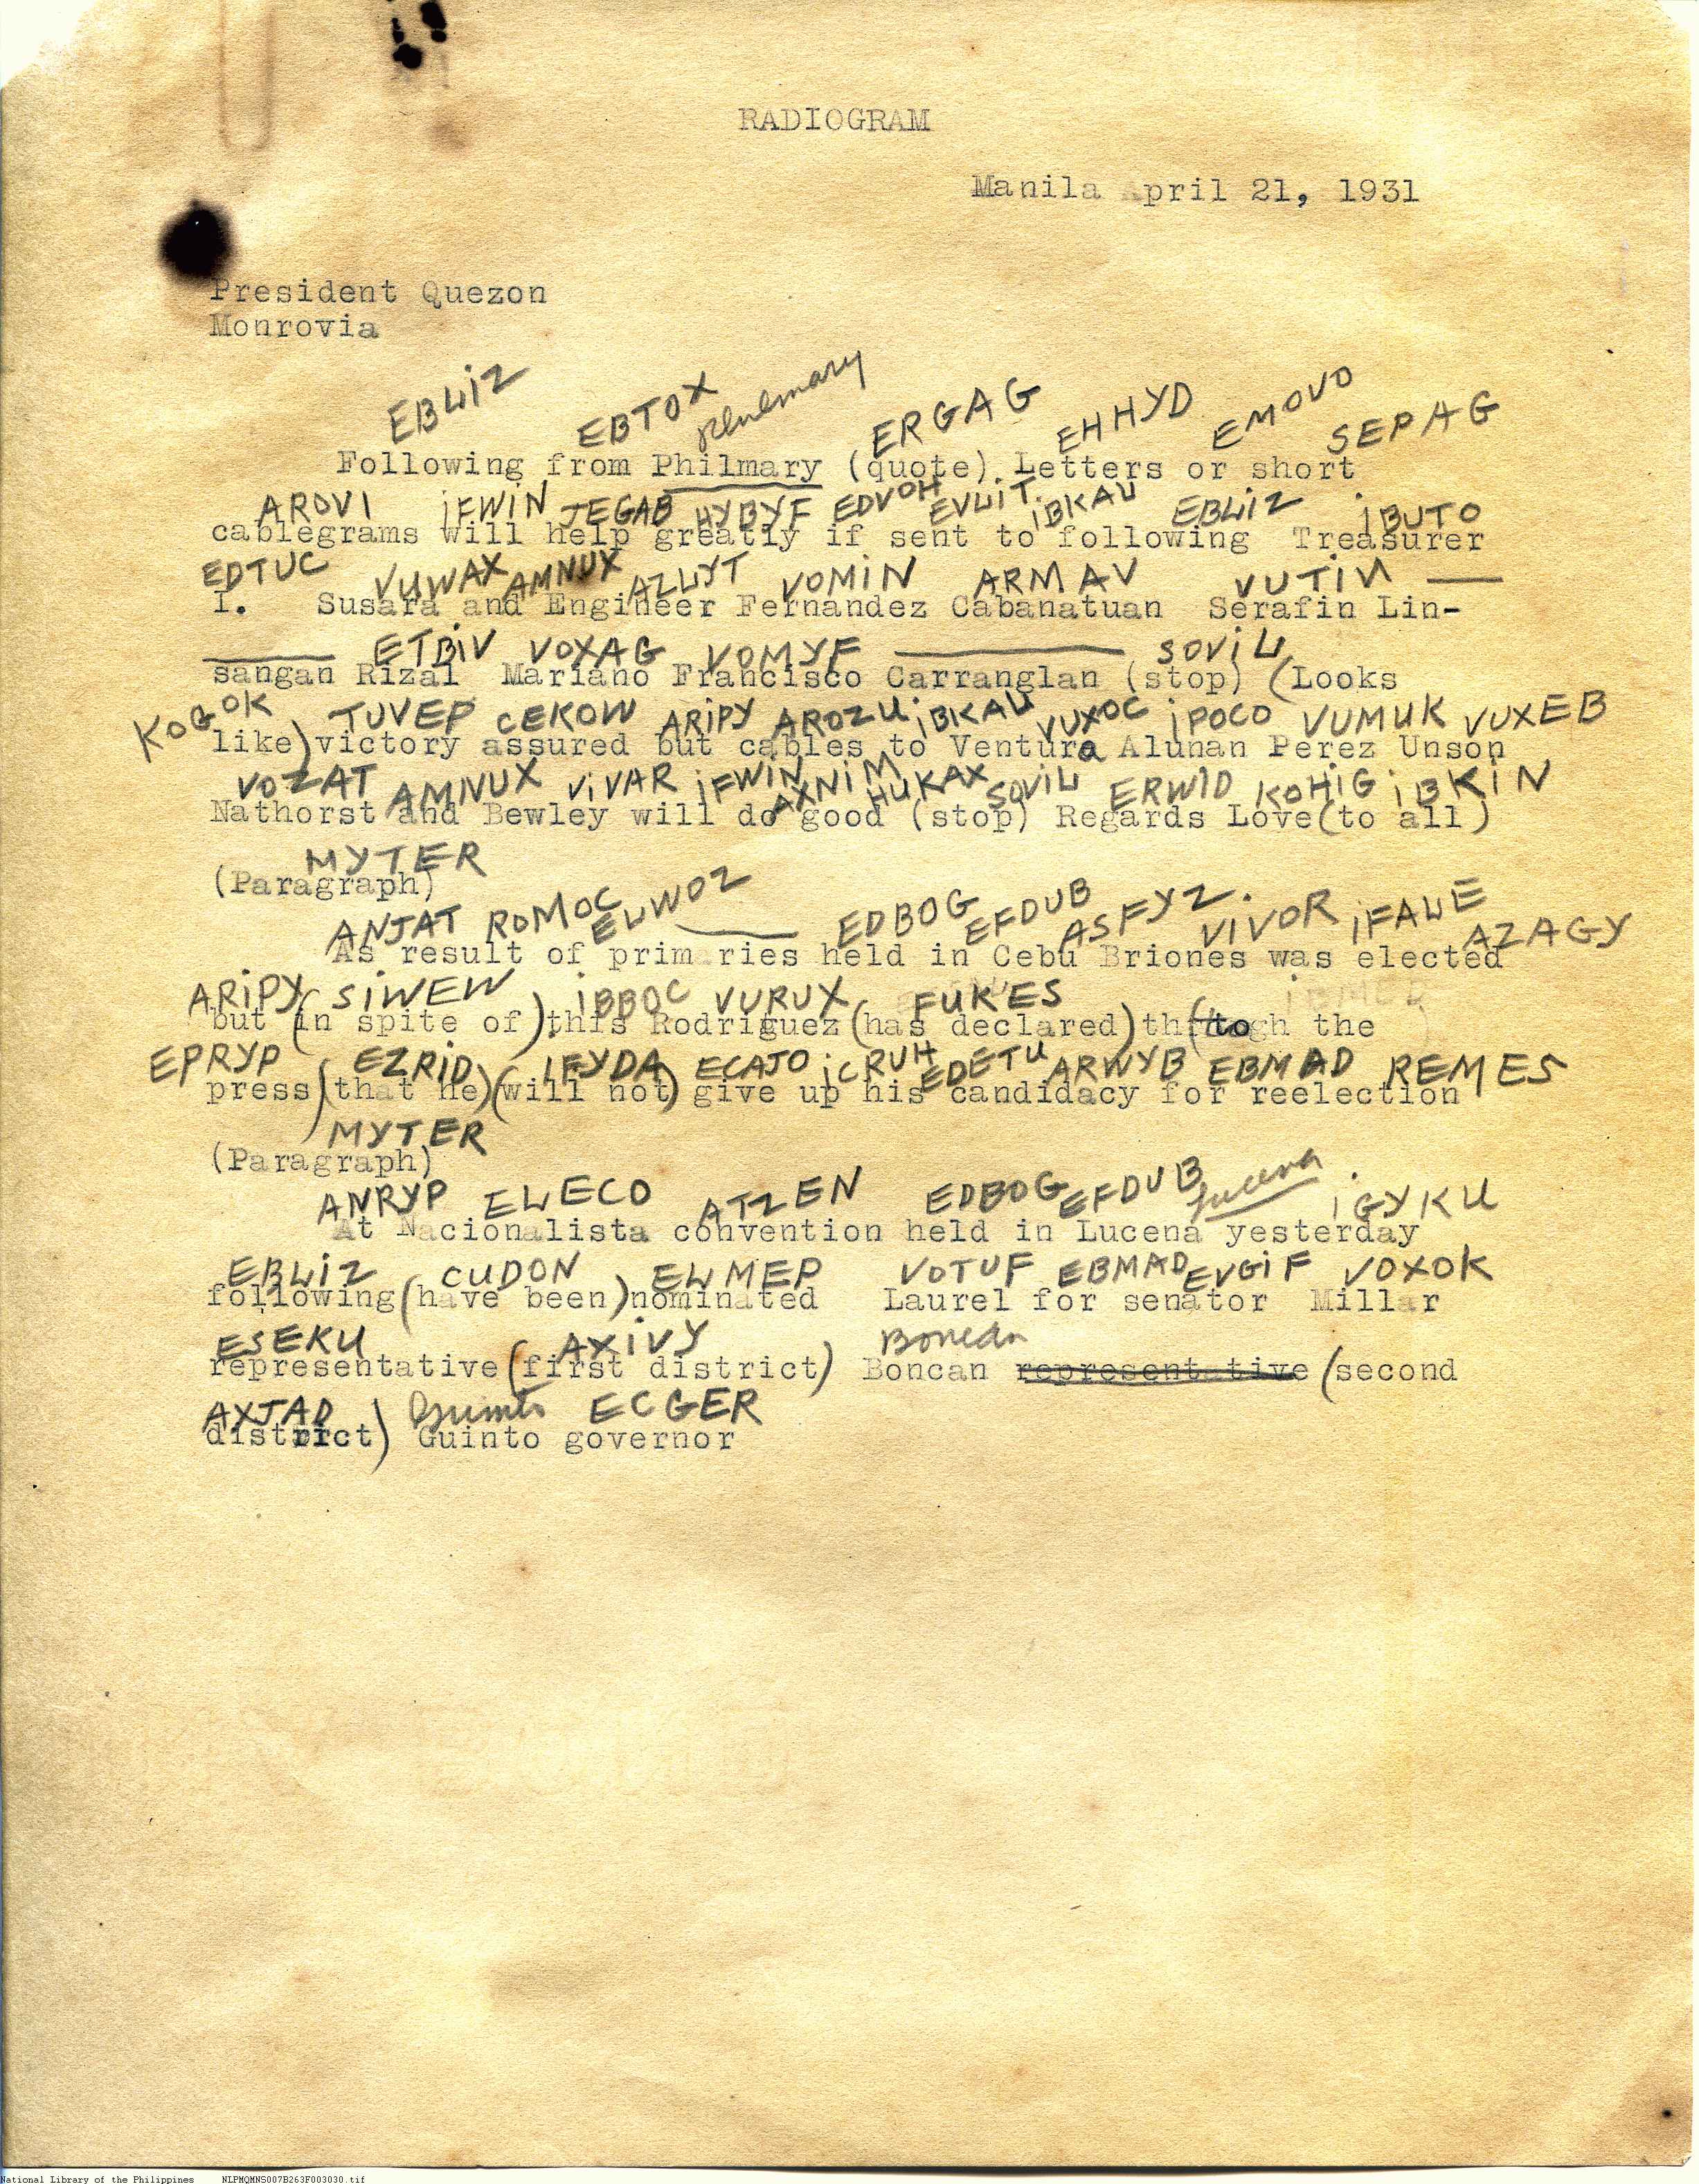 RADIOGRAM
Manila April 21, 1931
President Quezon
Monrovia
EBLIZ EBTOX Philmary ERGAG EHHYD EMOVO SEPAG
Following from Philmary (quote) Letters or short
AROVI IFWIN JEGAB HYBYF EDVOH EVLIT IBKAU EBLIZ IBUTO
cablegrams will help greatly if sent to following Treasurer
EDTUC VUWAX AMNUX AZLYT VOMIN ARMAV VUTIN
I. Susara and Engineer Fernandez Cabanatuan Serafin Lin-
ETBIV VOXAG VOMYF SOVIL
sangan Rizal Mariano Francisco Carranglan (stop) (Looks
KOGOK TUVEP CEKOW ARIPY AROZU IBKAU VUXOC IPOCO VUMUK VUXEB
like) victory assured but cables to Ventura Alunan Perez Unson
VOZAT AMNUX VIVAR IFWIN AXNIM HUKAX SOVIL ERWID KOHIG IBKIN
Nathorst and Bewley will do good (stop) Regards Love (to all)
MYTER
(Paragraph)
ANJAT ROMOC ELWOZ EDBOG EFDUB ASFYZ. VIVOR IFALE AZAGY
As result of primaries held in Cebu Briones was elected
ARIPY SIWEW IBBOC VURUX FUKES
but (in spite of) this Rodriguez (has declared) through the
EPRYP EZRID IFYDA ECAJO ICRUH EDETU ARWYB EBMAD REMES
press (that he) (will not) give up his candidacy for reelection
MYTER
(Paragraph)
ANRYP ELECO ATZEN EDBOG EFDUB Lucena IGYKU
At Nacionalista convention held in Lucena yesterday
EBLIZ CUDON ELMEP VOTUF EBMAD EVGIF VOXOK
following (have been) nominated Laurel for senator Millar
ESEKU AXIVY Boncan
representative (first district) Boncan representative (second
AXJAD Guinto ECGER
district) Guinto governor
National Library of the Philippines NLPMQMNS007B263F003030.tif